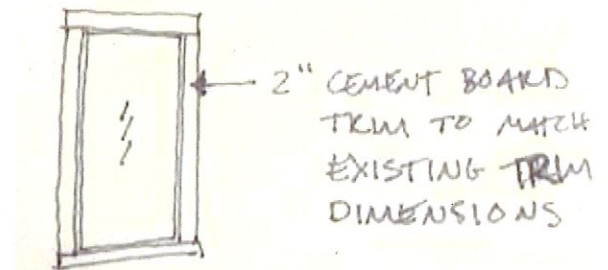 2" CEMENT BOARD
TRIM TO MATCH
EXISTING TRIM
DIMENSIONS